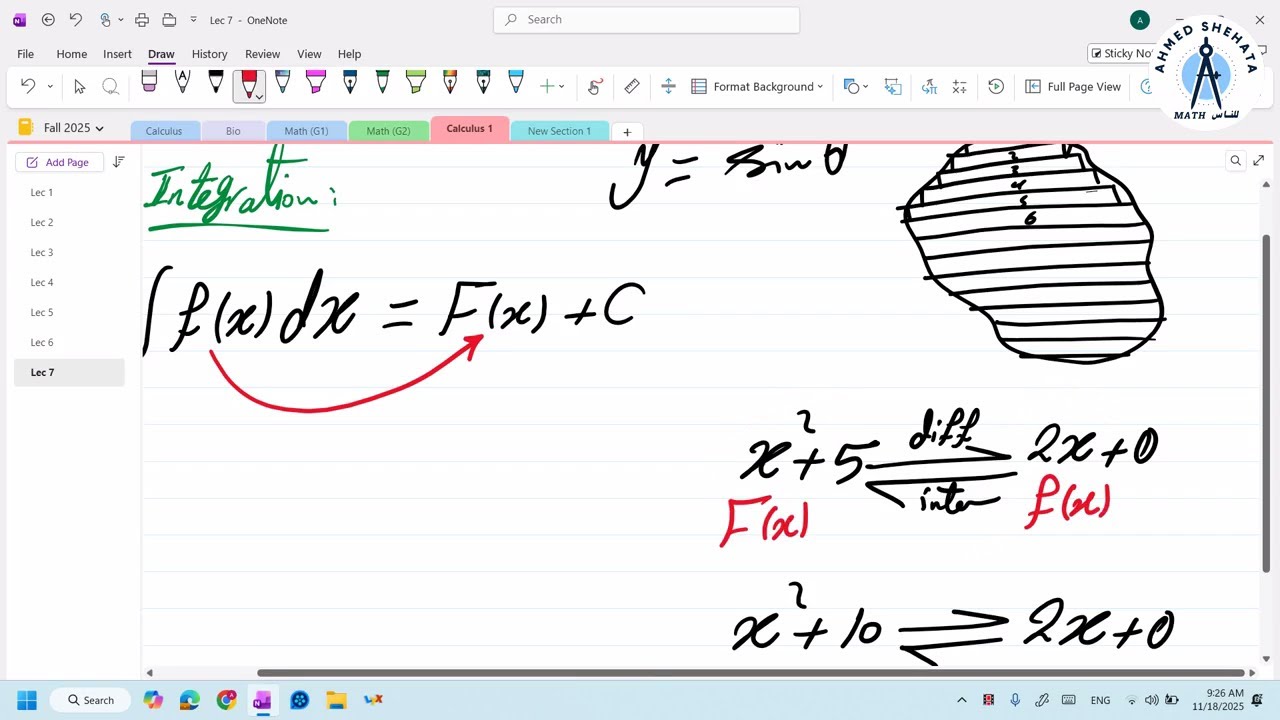 Lec 7 - OneNote
Search
A
File Home Insert Draw History Review View Help
Sticky No
Format Background
Full Page View
AHMED SHEHATA
MATH للناس
Fall 2025
Calculus
Bio
Math (G1)
Math (G2)
Calculus 1
New Section 1
Add Page
Lec 1
Lec 2
Lec 3
Lec 4
Lec 5
Lec 6
Lec 7
Integration:
y = sin θ
2
3
4
5
6
∫ f(x) dx = F(x) + C
x² + 5 diff 2x + 0
inte
F(x) f(x)
x² + 10 2x + 0
Search
ENG
9:26 AM
11/18/2025